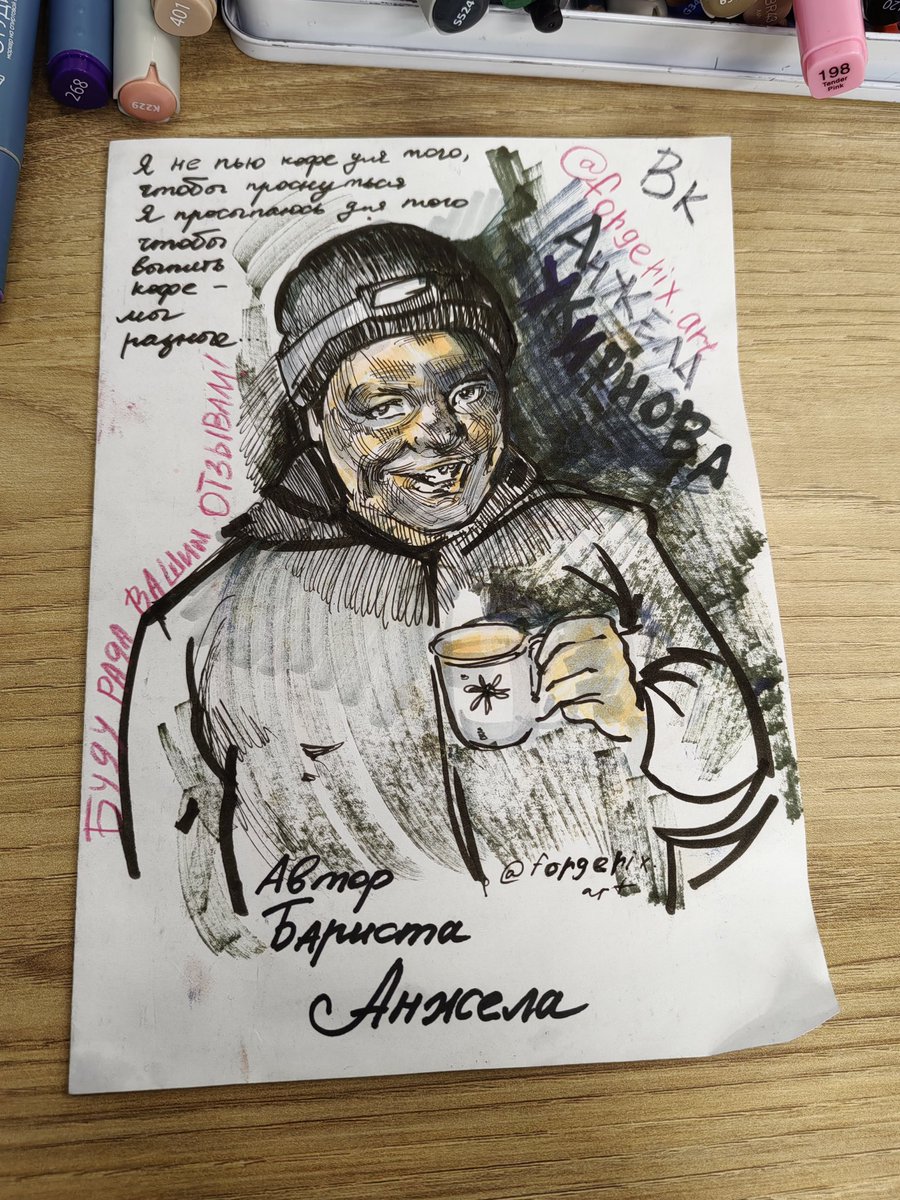 Я не пью кофе для того,
чтобы проснуться
Я просыпаюсь для того
чтобы
выпить
кофе –
мы
разные.
ВК
@forgerix.art
АНЖЕЛА
ЖИРНОВА
БУДУ РАДА ВАШИМ ОТЗЫВАМ!
@forgerix.
art
Автор
Бариста
Анжела
268
K229
401
S524
198
Tender
Pink